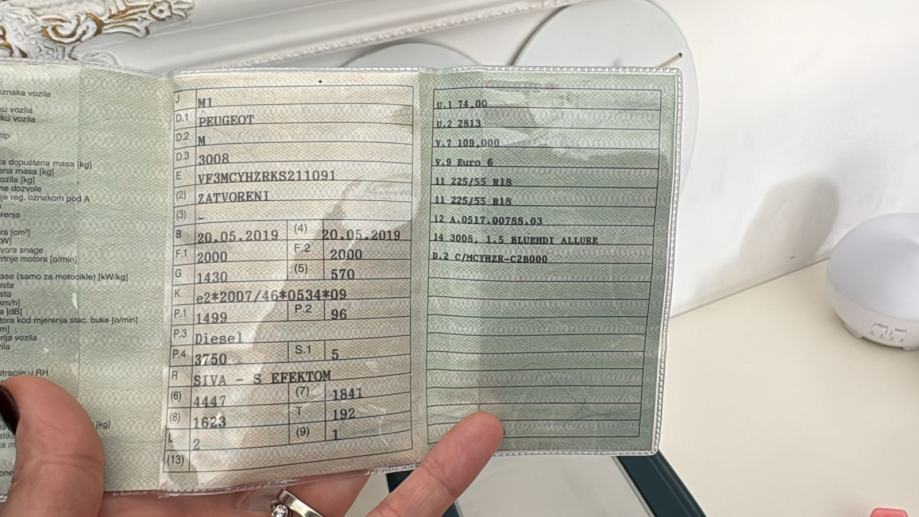 oznaka vozila
ku vozila
iku vozila
tip
a dopuštena masa [kg]
ena masa [kg]
ozila [kg]
ne dozvole
je reg. oznakom pod A
orenja
ra [cm³]
W]
vora snage
rtnje motora [o/min]
ase (samo za motocikle) [kW/kg]
esta
sta
m/h]
a [dB]
tora kod mjerenja stac. buke [o/min]
m]
nja vozila
ila
stracije u RH
[kg]
J M1
D.1 PEUGEOT
D.2 M
D.3 3008
E VF3MCYHZRKS211091
(2) ZATVORENI
(3) –
B 20.05.2019 (4) 20.05.2019
F.1 2000 F.2 2000
G 1430 (5) 570
K e2*2007/46*0534*09
P.1 1499 P.2 96
P.3 Diesel
P.4 3750 S.1 5
R SIVA - S EFEKTOM
(6) 4447 (7) 1841
(8) 1623 T 192
L 2 (9) 1
(13)
U.1 74,00
U.2 2813
V.7 109,000
V.9 Euro 6
11 225/55 R18
11 225/55 R18
12 A.0517.00788.03
14 3008, 1.5 BLUEHDI ALLURE
D.2 C/MCYHZR-C2B000